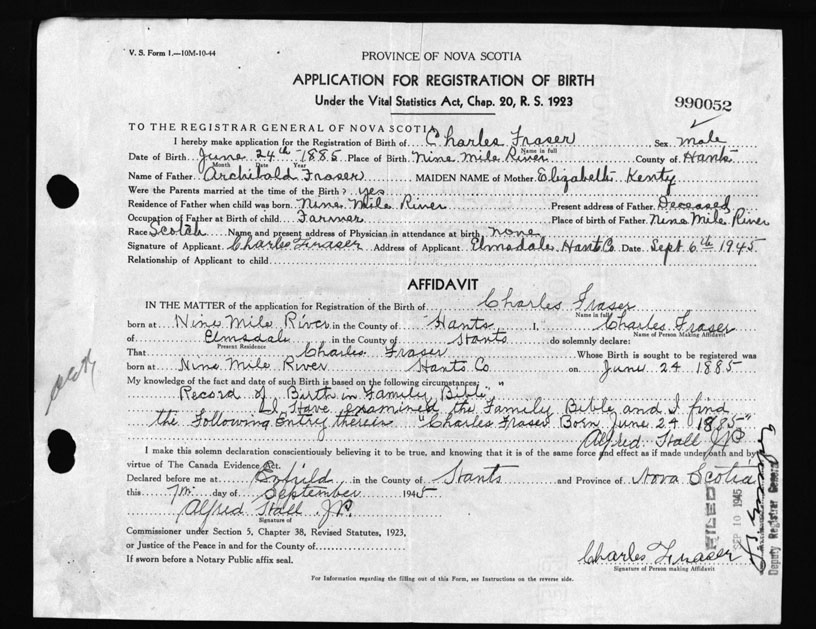 V. S. Form 1.—10M-10-44
PROVINCE OF NOVA SCOTIA
APPLICATION FOR REGISTRATION OF BIRTH
Under the Vital Statistics Act, Chap. 20, R. S. 1923
990052
TO THE REGISTRAR GENERAL OF NOVA SCOTIA
I hereby make application for the Registration of Birth of Charles Fraser Sex male
Name in full
Date of Birth June 24th 1885 Place of Birth Nine Mile River County of Hants
Month Date Year
Name of Father Archibald Fraser MAIDEN NAME of Mother Elizabeth Kenty
Were the Parents married at the time of the Birth? yes
Residence of Father when child was born Nine Mile River Present address of Father Deceased
Occupation of Father at Birth of child Farmer Place of birth of Father Nine Mile River
Race Scotch Name and present address of Physician in attendance at birth none
Signature of Applicant Charles Fraser Address of Applicant Elmsdale Hants Co. Date Sept 6th 1945
Relationship of Applicant to child
AFFIDAVIT
IN THE MATTER of the application for Registration of the Birth of Charles Fraser
Name in full
born at Nine Mile River in the County of Hants I, Charles Fraser
Name of Person Making Affidavit
of Elmsdale in the County of Hants do solemnly declare:
Present Residence
That Charles Fraser Whose Birth is sought to be registered was
born at Nine Mile River Hants Co on June 24 1885
My knowledge of the fact and date of such Birth is based on the following circumstances:
"Record of Birth in Family Bible"
I Have examined the Family Bible and I find
the Following Entry therein "Charles Fraser Born June 24 1885"
Alfred Hall J.P.
I make this solemn declaration conscientiously believing it to be true, and knowing that it is of the same force and effect as if made under oath and by
virtue of The Canada Evidence Act.
Declared before me at Enfield in the County of Hants and Province of Nova Scotia
this 7th day of September 1945
Alfred Hall J.P.
Signature of
Commissioner under Section 5, Chapter 38, Revised Statutes, 1923,
or Justice of the Peace in and for the County of
If sworn before a Notary Public affix seal.
Charles Fraser
Signature of Person making Affidavit
For Information regarding the filling out of this Form, see Instructions on the reverse side.
FILED
SEP 10 1945
Deputy Registrar General